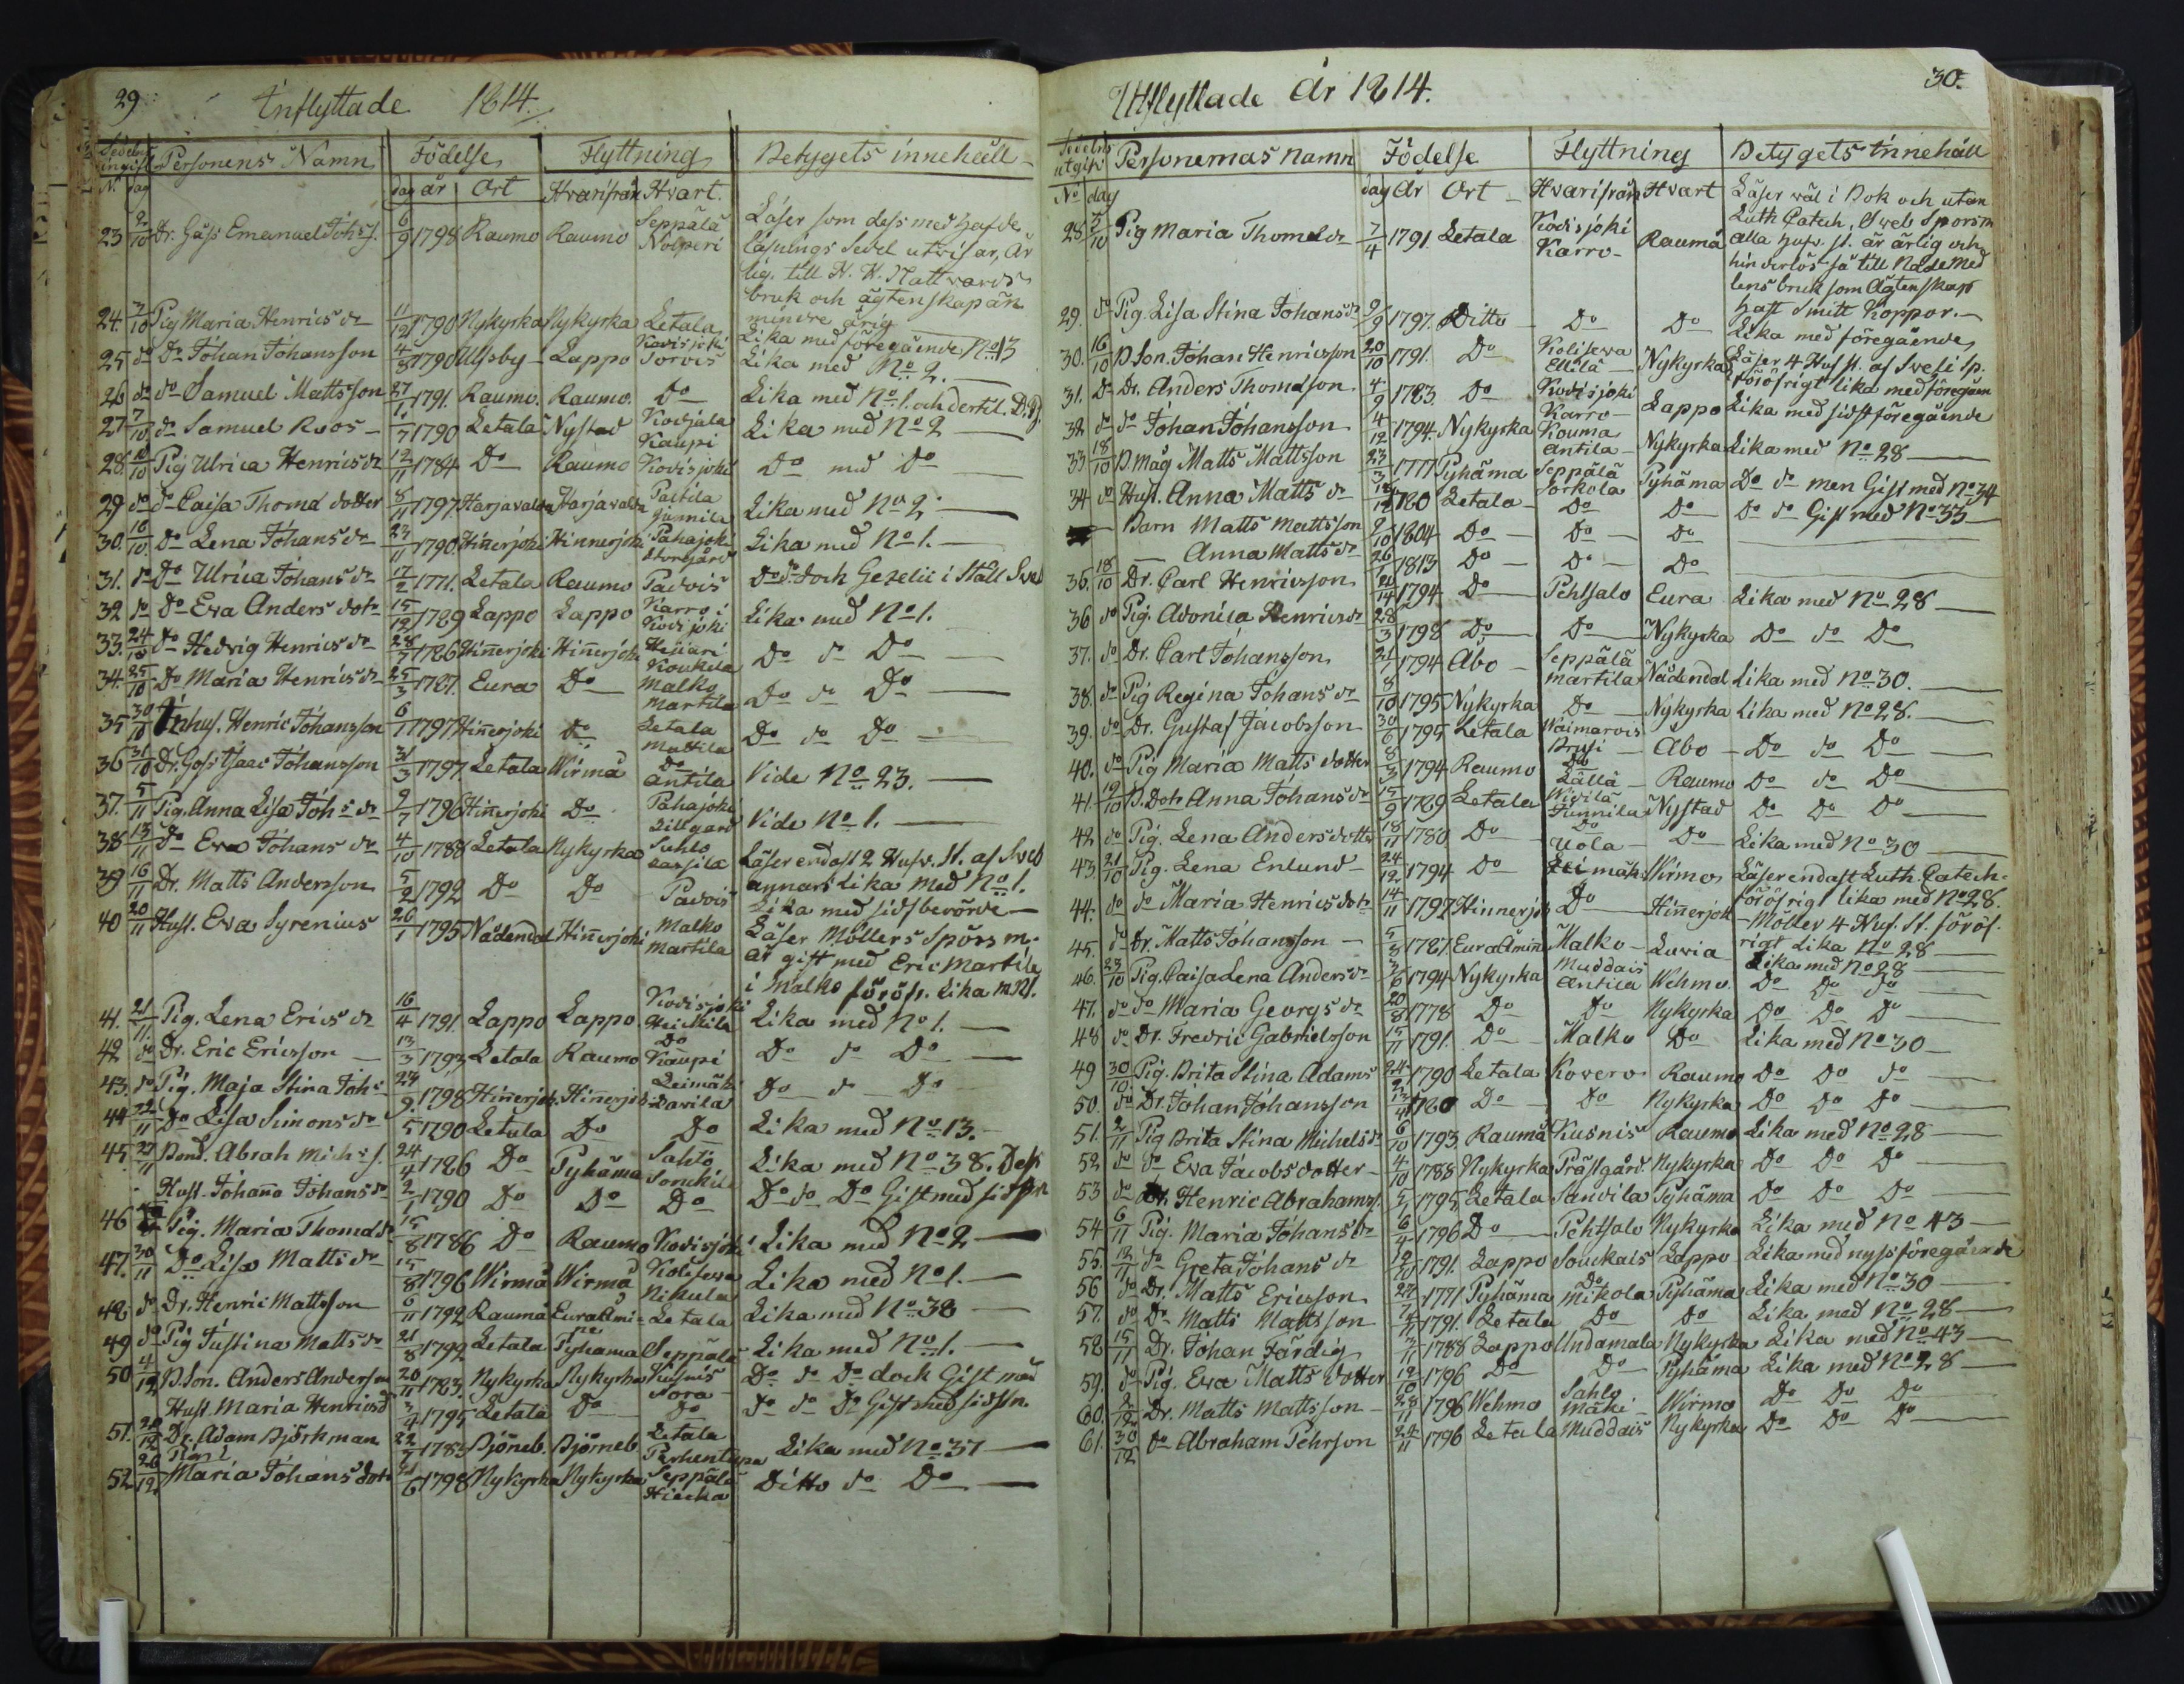 29
Inflyttade 1814.
Sedelns ingift Personens Namn Födelse Flyttning Betygets innehåll
N. dag dag år Ort Hvarifrån Hvart.
23 2/10 Dr. Goss Emanuel Johs S. 6/9 1798 Raumo Raumo Seppälä Nolperi Läser som dess medhafde
läsnings Sedel utvisar, Är
lig. till H. H. Nattvards
bruk och ägtenskap än
mindre årig
24. 7/10 Pig Maria Henrics dr 11/12 1790 Nykyrka Nykyrka Letala Lika med föregående No 13
25 do Do Johan Johansson 4/8 1790 Ulfsby Lappo Kodisjoki Sorvis Lika med No 2.
26 do do Samuel Mattsson 27/1 1791. Raumo. Raumo. Do Lika med No 1. och dertil. D. Bj.
27 7/10 do Samuel Roos 1/7 1790 Letala Nystad Kodjala Kaupi Lika med No 2
28. 10/10 Pig Ulrica Henrics dr 12/11 1784 Do Raumo Kodisjoki Do med Do
29 do do Caisa Thomas dotter 8/11 1797 Harjavalda Harjavalda Paitila Junnila Lika med No 2
30. 16/10 Do Lena Johans dr 23/11 1790 Hinnerjoki Hinnerjoki Pahajoki Storgård Lika med No 1.
31. do Do Ulrica Johans dr 17/2 1771. Letala Raumo Padvois Do do doch Gezelii i Ställ Sveb
32 do Do Eva Anders dotr 15/12 1789 Lappo Lappo Karro i Kodisjoki Lika med No 1.
33. 24/10 Do Hedvig Henrics dr 28/7 1786 Hinnerjoki Hinnerjoki Heinari Koukila Do do Do
34. 25/10 Do Maria Henrics dr 25/3 1787. Eura Do Malko Martila Do do Do
35 30/10 Inhys. Henric Johansson 6/1 1797 Hinnerjoki Do Letala Mattila Do do Do
36 31/10 Dr. Goss Isaac Johansson 31/3 1797 Letala Wirmå Do Antila Vide No 23.
37. 5/11 Pig. Anna Lisa Johs dr 9/7 1796 Hinnerjoki Do Pahajoki Lillgård Vide No 1.
38 13/11 Do Eva Johans dr 4/10 1788 Letala Nykyrka Suhlo Läser endast 2 Hufv. St. af Sveb
annars Lika med No 1.
39 16/11 Dr. Matts Andersson 5/2 1792 Do Do Padvois Lika med sidsberörde
40 20/11 Hust. Eva Syrenius 26/1 1795 Nådendal Hinnerjoki Malko Martila Läser Möllers Spörsm.
är gift med Eric Martila
i Malko föröfr. Lika m N1.
41. 21/11. Pig. Lena Erics dr 16/4 1791. Lappo Lappo Kodisjoki Heickilä Lika med No 1.
42. do Dr. Eric Ericsson 13/3 1793 Letala Raumo Do Kaupi Do do Do
43. do Pig. Maja Stina Johs 24/9. 1798 Hinnerjoki. Hinnerjoki Leimäki Davila Do do Do
44 22/11 Do Lisa Simons dr 5 1790 Letala Do Do Lika med No 13.
45. 27/11 Bond. Abrah Michs S. 24/4 1786 Do Pyhäma Sahlo Lika med No 38. Dess
Hust. Johanna Johans dr 2/1 1790 Do Do Do Do do Do Gift med sidstn
46 Pig. Maria Thomas dr 15/8 1786 Do Raumo Kodisjoki Lika med No 2
47. 30/11 Do Lisa Matts dr 15/8 1796 Wirmå Wirmå Kolisewa Nikula Lika med No 1.
48. do Dr. Henric Mattsson 6/11 1792 Raumå Eura Åmi= ne Letala Lika med No 38
49 do Pig Justina Matts dr 21/8 1792 Letala Pyhama Seppälä Lika med No 1.
50 4/12 B. Son. Anders Andersson 20/11 1783. Nykyrka Nykyrka Kusnis Sora Do do Do doch Gift med
Hust. Maria Henricsd 3/4 1795 Letala Do Do do do Do Gift med sidstn.
51. 20/12 Dr. Adam Björkman 22/5 1783 Bjöneb. Bjorneb Letala Perhentupa Lika med No 37
52. 26/12. Pig Maria Johans dotr 21/6 1798 Nykyrka Nykyrka Seppälä Hiecka Ditto do Do
Utflyttade År 1814. 30.
Sedelns utgift Personernas namn Födelse Flyttning Betygets Innehåll
No dag dag År Ort Hvarifrån Hvart
28 5/10 Pig Maria Thomas dr 7/4 1791. Letala Kodisjoki Karro Raumå Läser wäl i Bok och utan
Luth Catech, Sveb Sporsm
alla hufv. st. är ärlig och
hinderlös så till Nådemed
lens bruk som Ägtenskap
haft Smitt Koppor.
29. do Pig. Lisa Stina Johans dr 9/9 1797. Ditto Do Do Lika med föregående
30. 16/10 B. Son. Johan Henricsson 20/10 1791. Do Kolisewa Ellilä Nykyrka Läser 4 Huf St. af Svebi Sp.
föröfrigt lika med föregåen
31. Do Dr. Anders Thomasson 4/9 1783. Do Kodisjoki Karro Lappo Lika med sidstföregående
32 do do Johan Johansson 4/12 1794. Nykyrka Kouma Antila Nykyrka Lika med No 28
33 18/10 B. Måg Matts Mattsson 23/3 1777 Pyhäma Seppälä Sorkola Pyhäma Do do men Gift med No 34
34 do Hust. Anna Matts dr 12/12 1780 Letala Do Do Do do Gift med No 33
Barn Matts Mattsson 9/10 1804 Do Do Do
Anna Matts dr 26/1 1813 Do Do Do
36. 18/10 Dr. Carl Henricsson 1794 Do Pehtsalo Eura Lika med No 28
36 do Pig. Adonica Henrics dr 28/3 1798 Do Do Nykyrka Do do Do
37. do Dr. Carl Johansson 21/1 1794 Abo Seppälä Martila Nådendal Lika med No 30.
38. do Pig Regina Johans dr 8/10 1795 Nykyrka Do Nykyrka Lika med No 28.
39. do Dr. Gustaf Jacobsson 30/6 1795 Letala Waimarois Brusi Åbo Do do Do
40. do Pig Maria Matts dotter 8/3 1794 Raumo Do Lällä Raumo Do do Do
41. 19/10 B. Dotr Anna Johans dr 15/9 1789 Letala Widilä Junnila Nystad Do Do Do
42 do Pig. Lena Andersdotter 18/11 1780 Do Do Uola Do Lika med No 30
43. 21/10 Pig. Lena Enlund 24/12 1794 Do Leimäki Wirmo Läser endast Luth. Catech.
föröfrigt lika med No 28.
44. do do Maria Henricsdotr 14/11 1792 Hinnerjok Do Hinnerjoki Möller 4 Huf. St. föröf.
rigt Lika No 28
45. do Dr. Matts Johansson 5/8 1787. Eura Åmin Malko Luvia Lika med No 28
46. 23/10 Pig. Caisa Lena Anders dr 3/6 1794 Nykyrka Muddais Antila Wehmo. Do Do do
47. do do Maria Georgs dr 20/8 1778 Do Do Nykyrka Do Do Do
48 do Dr. Fredric Gabrielsson 15/11 1791. Do Malko Do Lika med No 30
49 30/10. Pig. Brita Stina Adams 24/2 1790 Letala Kovero Raumo Do Do do
50. do Dr. Johan Johansson 13/4 1780 Do Do Nykyrka Do Do Do
51. 2/11 Pig Brita Stina Michels dr 6/10 1793. Raumå Kusnis Raumo Lika med No 28
52 do do Eva Jacobsdotter 4/10 1788 Nykyrka Prästgård. Nykyrka Do Do Do
53 do Dr. Henric Abrahamss. 1795 Letala Sandila Pyhäma Do Do Do
54 6/11 Pig. Maria Johans dr 6/4 1796 Do Pehtsalo Nykyrka Lika med No 43
55. 12/11 do Greta Johans dr 12/10 1791. Lappo Souckais Lappo Lika med nyss föregående
56 do Dr. Matts Ericsson 24 1771 Pyhäma Do Mikola Pyhäma Lika med No 30
57. do Do Matts Mattsson 1791. Letala Do Do Lika med No 28
58 15/11 Dr. Johan Färdig 3/11 1788 Lappo Undamala Nykyrka Lika med No 43
59. do Pig. Eva Matts dotter 12/10 1796 Do Do Pyhäma Lika med No 28
60. 2/12 Dr. Matts Mattsson 28/11 1786 Wehmo Sahlo Mäki Wirmo Do Do Do
61. 30/12 Do Abraham Pehrsson 24/11 1796 Letala Muddais Nykyrka Do Do Do